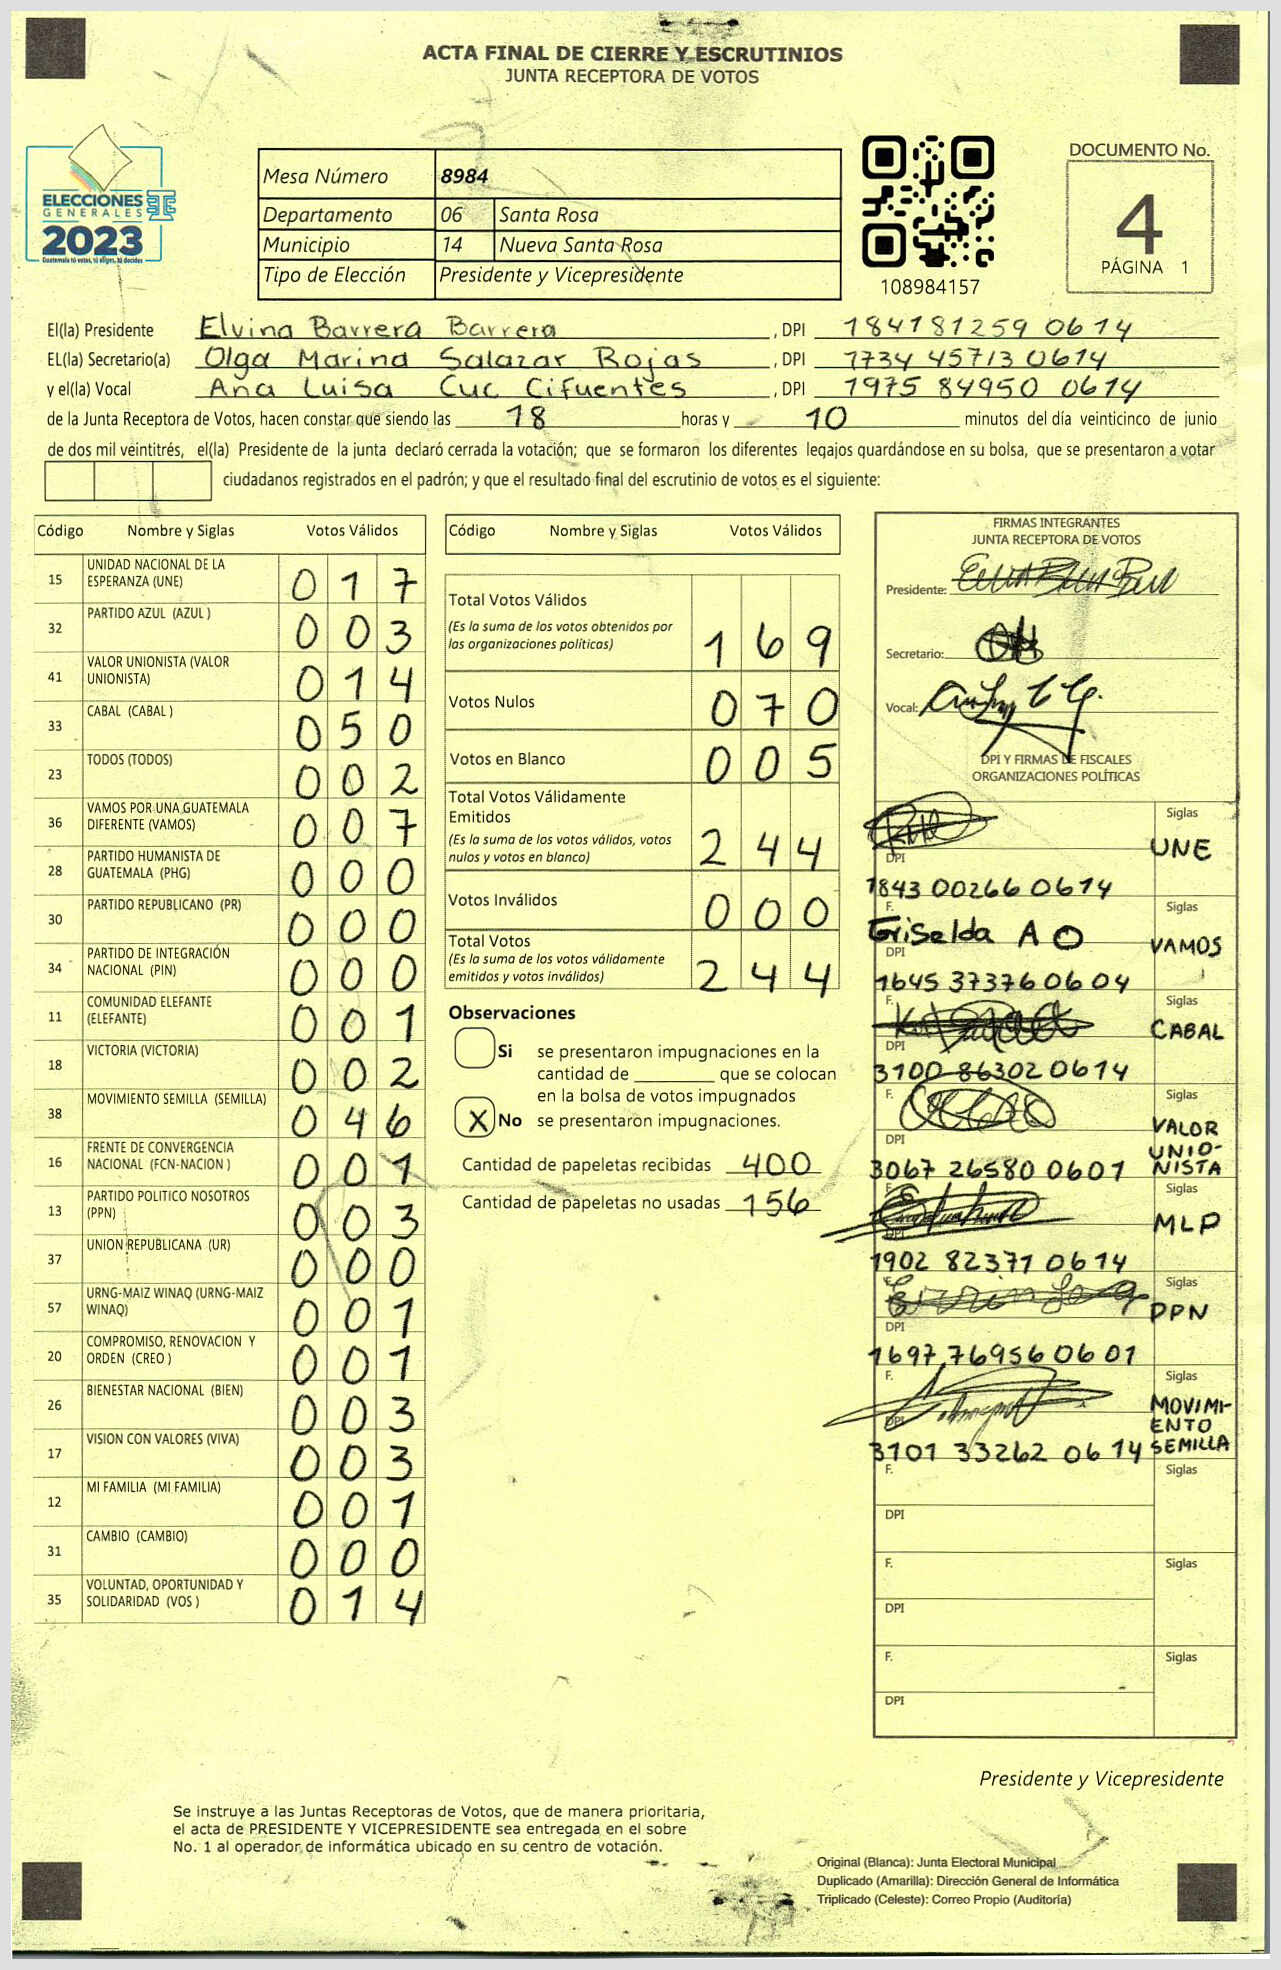 ACTA FINAL DE CIERRE Y ESCRUTINIOS
JUNTA RECEPTORA DE VOTOS
ELECCIONES
GENERALES
2023
Guatemala tú votas, tú eliges, tú decides
Mesa Número 8984
Departamento 06 Santa Rosa
Municipio 14 Nueva Santa Rosa
Tipo de Elección Presidente y Vicepresidente
108984157
DOCUMENTO No.
4
PÁGINA 1
El(la) Presidente Elvina Barrera Barrera , DPI 184181259 0614
EL(la) Secretario(a) Olga Marina Salazar Rojas , DPI 1734 45713 0614
y el(la) Vocal Ana Luisa Cuc Cifuentes , DPI 1975 84950 0614
de la Junta Receptora de Votos, hacen constar que siendo las 18 horas y 10 minutos del día veinticinco de junio
de dos mil veintitrés, el(la) Presidente de la junta declaró cerrada la votación; que se formaron los diferentes legajos guardándose en su bolsa, que se presentaron a votar
ciudadanos registrados en el padrón; y que el resultado final del escrutinio de votos es el siguiente:
Código Nombre y Siglas Votos Válidos
15 UNIDAD NACIONAL DE LA
ESPERANZA (UNE) 0 1 7
32 PARTIDO AZUL (AZUL ) 0 0 3
41 VALOR UNIONISTA (VALOR
UNIONISTA) 0 1 4
33 CABAL (CABAL ) 0 5 0
23 TODOS (TODOS) 0 0 2
36 VAMOS POR UNA GUATEMALA
DIFERENTE (VAMOS) 0 0 7
28 PARTIDO HUMANISTA DE
GUATEMALA (PHG) 0 0 0
30 PARTIDO REPUBLICANO (PR) 0 0 0
34 PARTIDO DE INTEGRACIÓN
NACIONAL (PIN) 0 0 0
11 COMUNIDAD ELEFANTE
(ELEFANTE) 0 0 1
18 VICTORIA (VICTORIA) 0 0 2
38 MOVIMIENTO SEMILLA (SEMILLA) 0 4 6
16 FRENTE DE CONVERGENCIA
NACIONAL (FCN-NACION ) 0 0 1
13 PARTIDO POLITICO NOSOTROS
(PPN) 0 0 3
37 UNION REPUBLICANA (UR) 0 0 0
57 URNG-MAIZ WINAQ (URNG-MAIZ
WINAQ) 0 0 1
20 COMPROMISO, RENOVACION Y
ORDEN (CREO ) 0 0 1
26 BIENESTAR NACIONAL (BIEN) 0 0 3
17 VISION CON VALORES (VIVA) 0 0 3
12 MI FAMILIA (MI FAMILIA) 0 0 1
31 CAMBIO (CAMBIO) 0 0 0
35 VOLUNTAD, OPORTUNIDAD Y
SOLIDARIDAD (VOS ) 0 1 4
Código Nombre y Siglas Votos Válidos
Total Votos Válidos
(Es la suma de los votos obtenidos por
las organizaciones políticas) 1 6 9
Votos Nulos 0 7 0
Votos en Blanco 0 0 5
Total Votos Válidamente
Emitidos
(Es la suma de los votos válidos, votos
nulos y votos en blanco) 2 4 4
Votos Inválidos 0 0 0
Total Votos
(Es la suma de los votos válidamente
emitidos y votos inválidos) 2 4 4
Observaciones
Si se presentaron impugnaciones en la
cantidad de ________ que se colocan
en la bolsa de votos impugnados
X No se presentaron impugnaciones.
Cantidad de papeletas recibidas 400
Cantidad de papeletas no usadas 156
FIRMAS INTEGRANTES
JUNTA RECEPTORA DE VOTOS
Presidente:
Secretario:
Vocal:
DPI Y FIRMAS DE FISCALES
ORGANIZACIONES POLÍTICAS
Siglas
UNE
DPI
1843 00266 0614
F. Siglas
Griselda A O VAMOS
DPI
1645 37376 0604
F. Siglas
CABAL
DPI
3100 86302 0614
F. Siglas
VALOR
UNIO-
NISTA
DPI
3067 26580 0601
F. Siglas
MLP
DPI
1902 82371 0614
F. Siglas
PPN
DPI
1697 76956 0601
F. Siglas
MOVIMI-
ENTO
SEMILLA
DPI
3101 33262 0614
F. Siglas
DPI
F. Siglas
DPI
F. Siglas
DPI
Presidente y Vicepresidente
Se instruye a las Juntas Receptoras de Votos, que de manera prioritaria,
el acta de PRESIDENTE Y VICEPRESIDENTE sea entregada en el sobre
No. 1 al operador de informática ubicado en su centro de votación.
Original (Blanca): Junta Electoral Municipal
Duplicado (Amarilla): Dirección General de Informática
Triplicado (Celeste): Correo Propio (Auditoría)